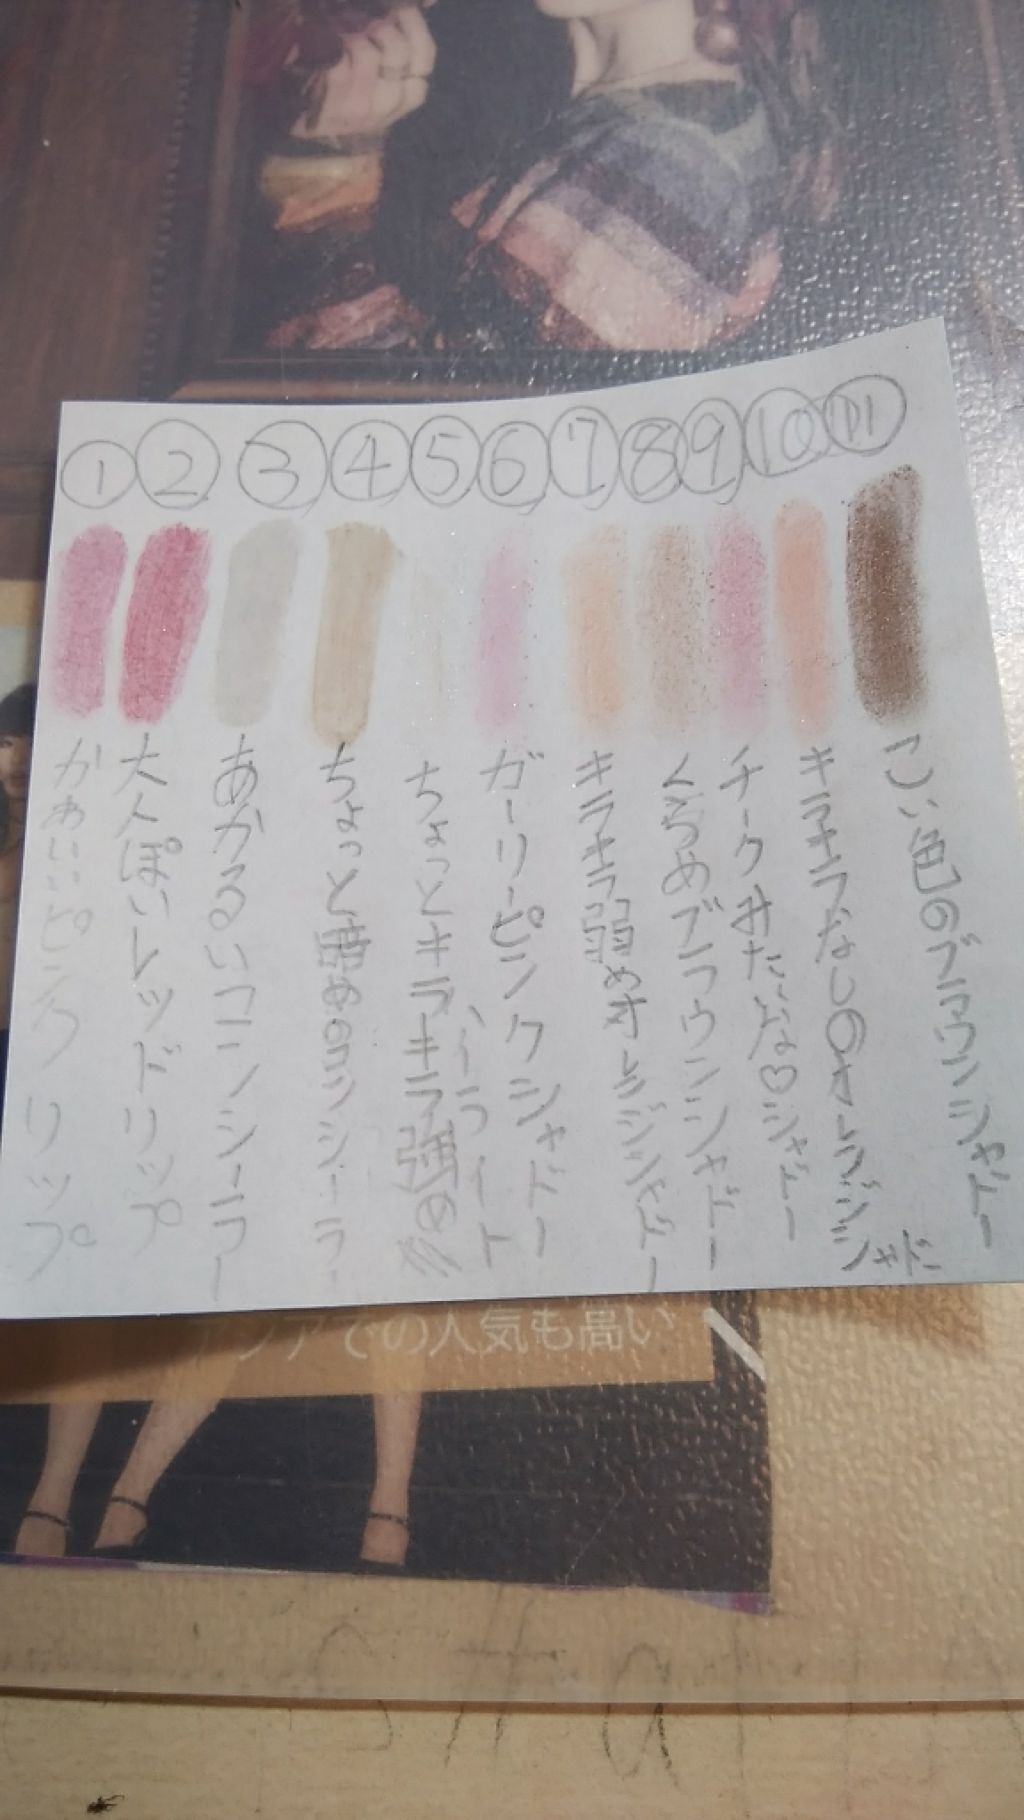 ①②③④⑤⑥⑦⑧⑨⑩⑪
かぁいいピンクリップ
大人ぽいレッドリップ
あかるいコンシーラー
ちょっと暗めのコンシーラー
ちょっとキラキラ強め
ハイライト
ガーリーピンクシャドー
キラキラ弱めオレンジシャドー
くらめブラウンシャドー
チークみたいな♡シャドー
キラキラなしのオレンジシャドー
こい色のブラウンシャドー
アジアでの人気も高い